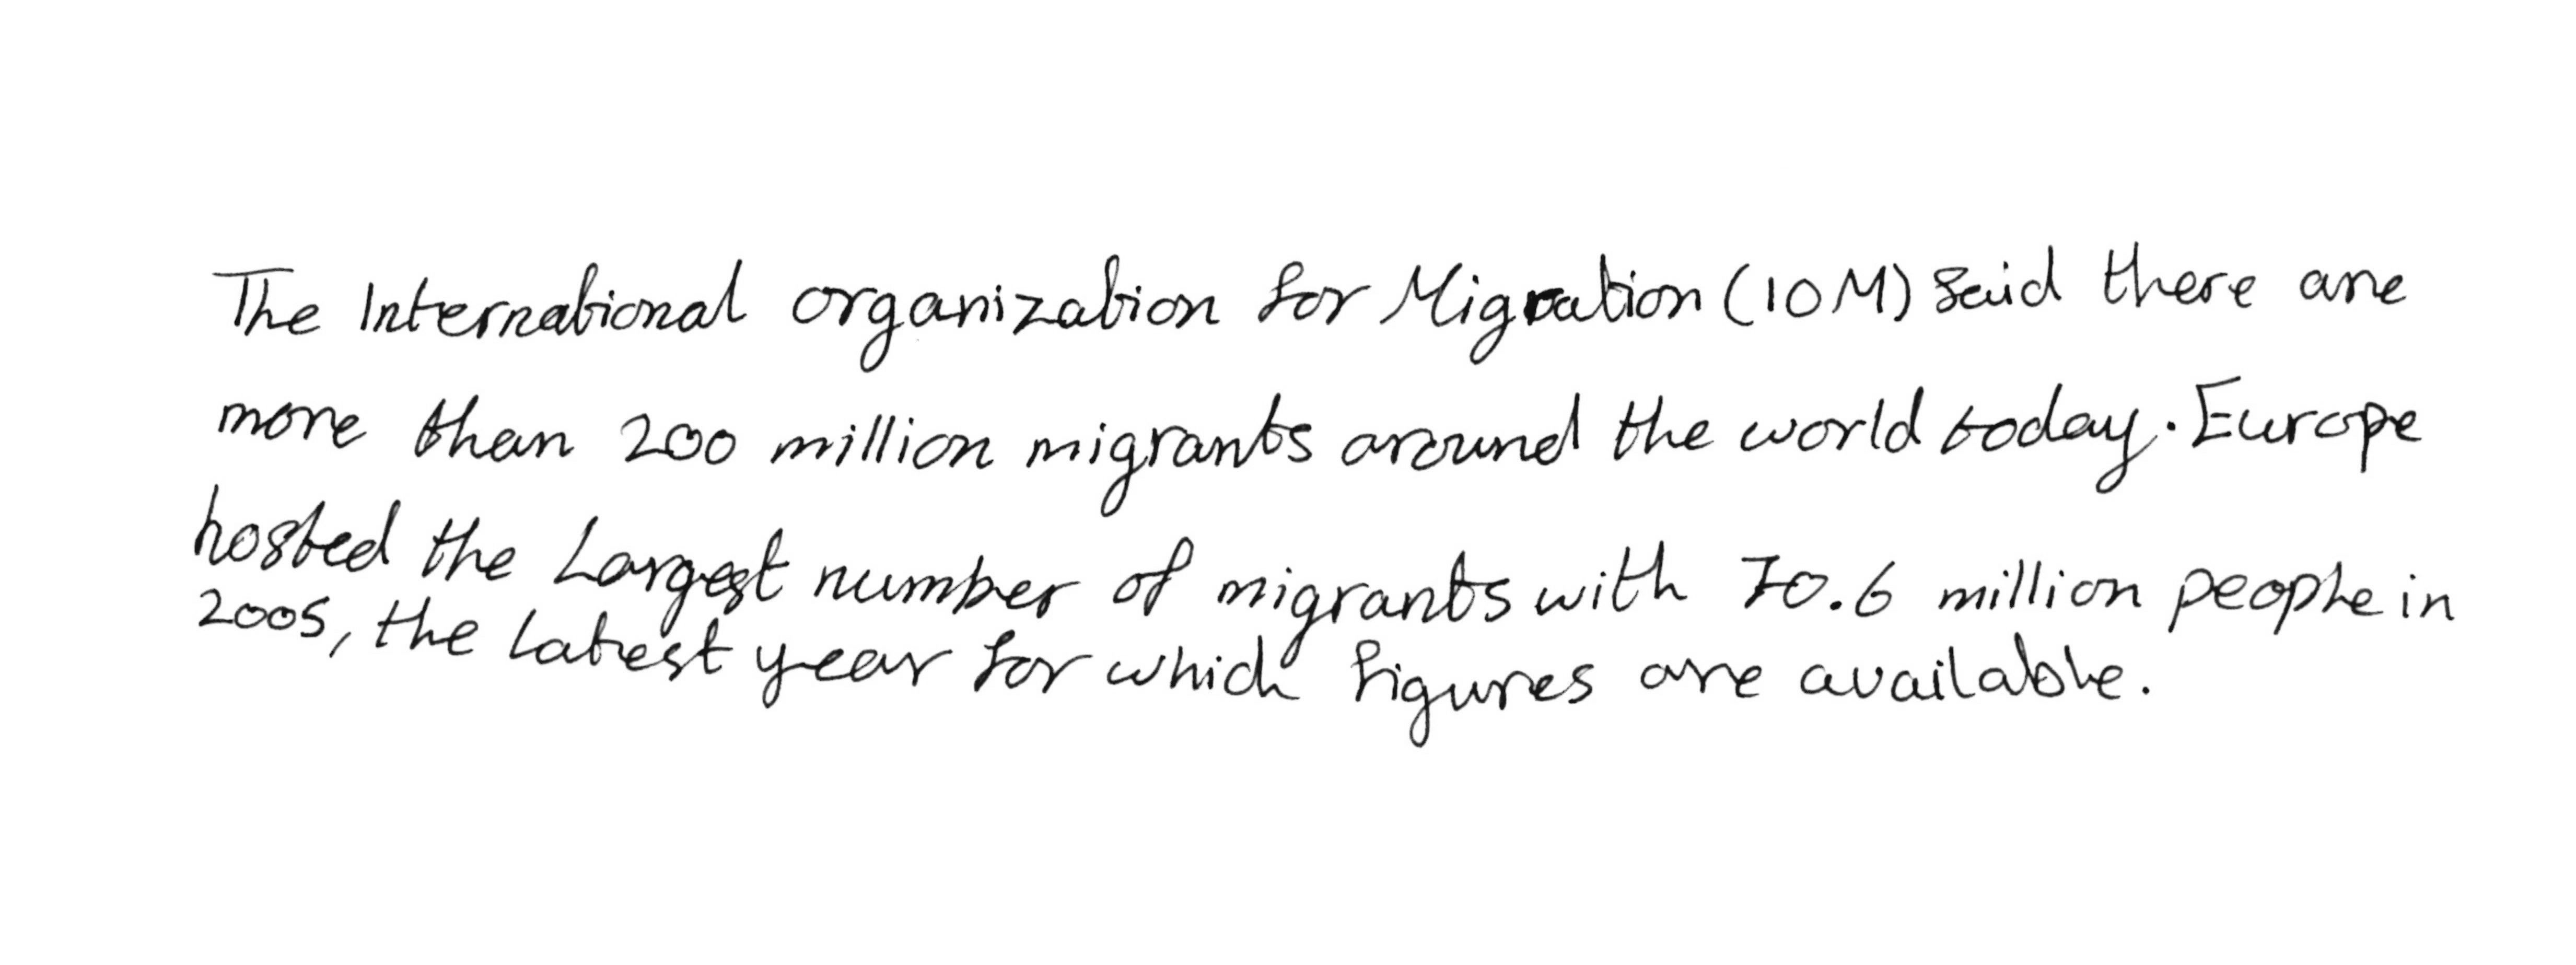 The International organization for Migration (IOM) said there are
more than 200 million migrants around the world today. Europe
hosted the Largest number of migrants with 70.6 million people in
2005, the latest year for which figures are available.